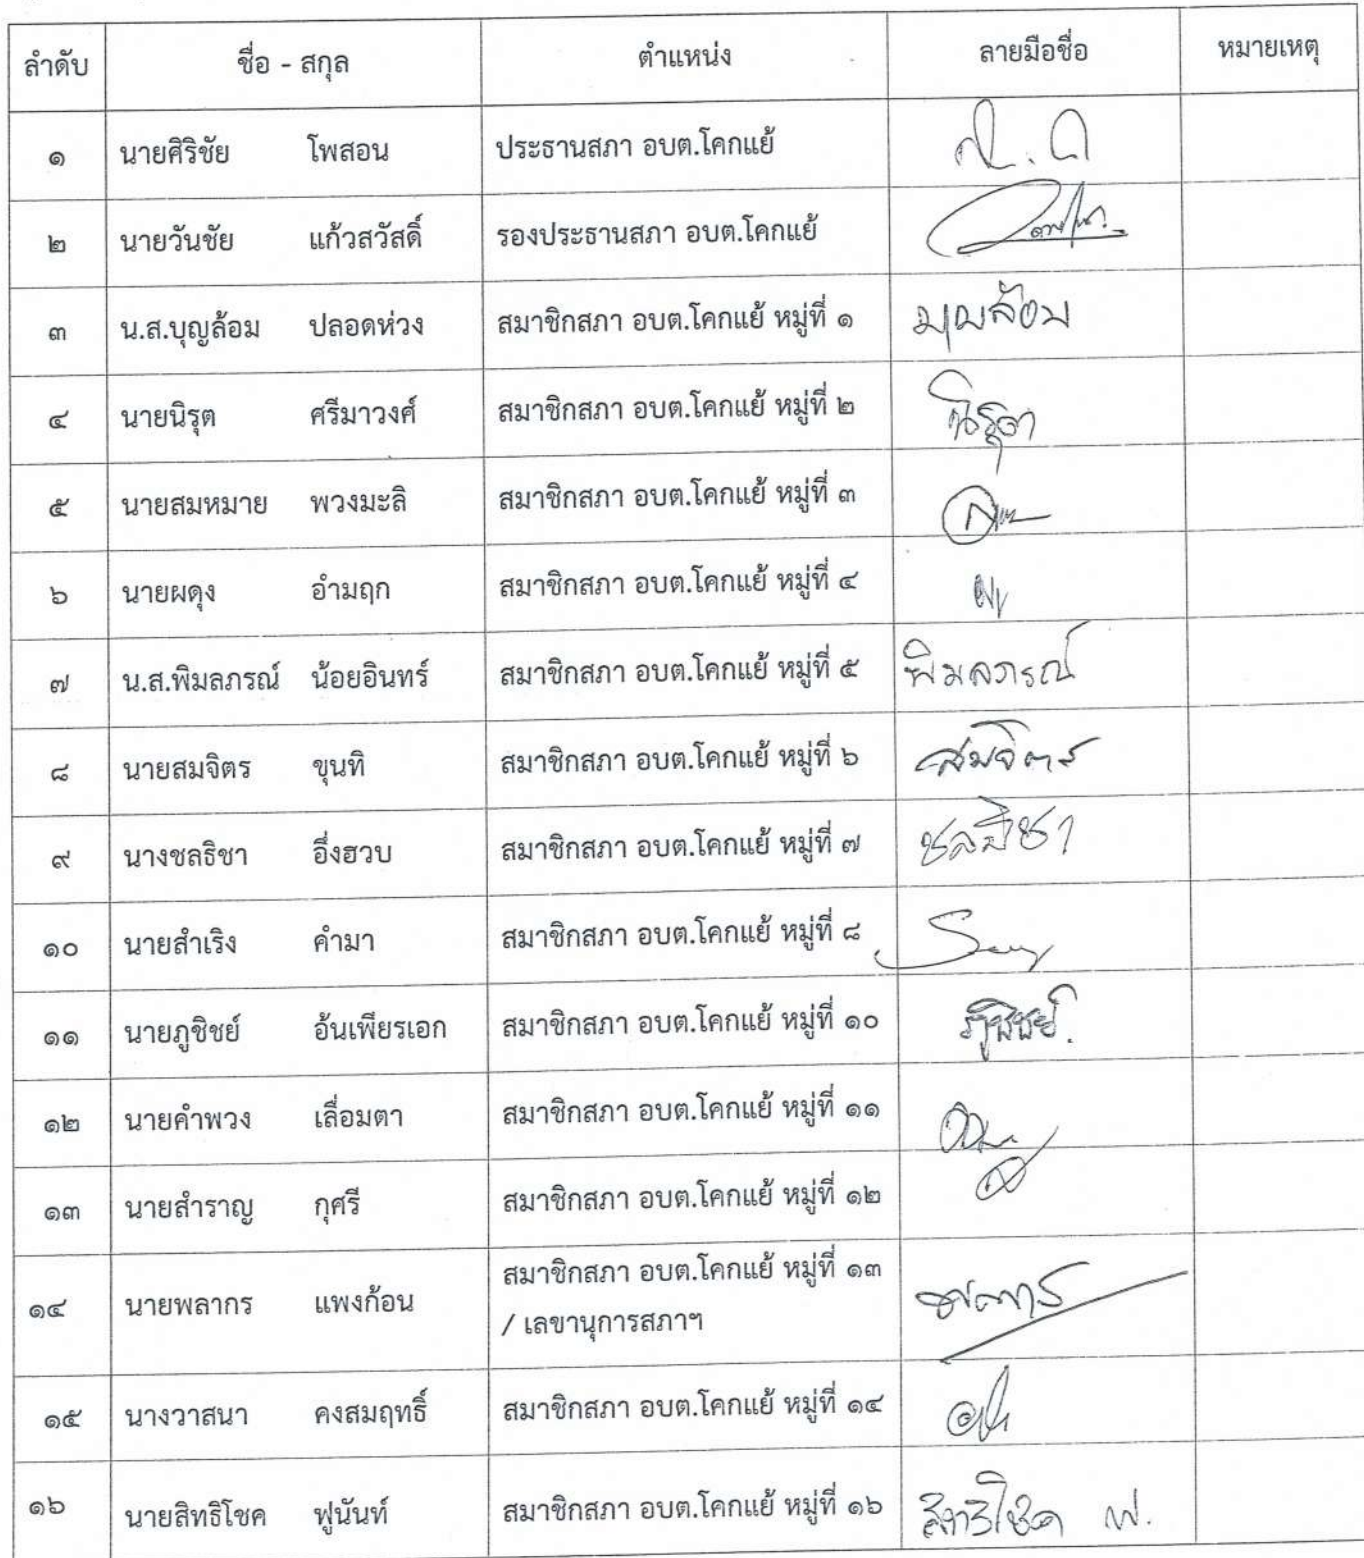 ลำดับ ชื่อ - สกุล ตำแหน่ง ลายมือชื่อ หมายเหตุ
๑ นายศิริชัย โพสอน ประธานสภา อบต.โคกแย้
๒ นายวันชัย แก้วสวัสดิ์ รองประธานสภา อบต.โคกแย้
๓ น.ส.บุญล้อม ปลอดห่วง สมาชิกสภา อบต.โคกแย้ หมู่ที่ ๑ บุญล้อม
๔ นายนิรุต ศรีมาวงศ์ สมาชิกสภา อบต.โคกแย้ หมู่ที่ ๒ นิรุต
๕ นายสมหมาย พวงมะลิ สมาชิกสภา อบต.โคกแย้ หมู่ที่ ๓
๖ นายผดุง อำมฤก สมาชิกสภา อบต.โคกแย้ หมู่ที่ ๔
๗ น.ส.พิมลภรณ์ น้อยอินทร์ สมาชิกสภา อบต.โคกแย้ หมู่ที่ ๕ พิมลภรณ์
๘ นายสมจิตร ขุนทิ สมาชิกสภา อบต.โคกแย้ หมู่ที่ ๖ สมจิตร
๙ นางชลธิชา อึ่งฮวบ สมาชิกสภา อบต.โคกแย้ หมู่ที่ ๗ ชลธิชา
๑๐ นายสำเริง คำมา สมาชิกสภา อบต.โคกแย้ หมู่ที่ ๘
๑๑ นายภูชิชย์ อ้นเพียรเอก สมาชิกสภา อบต.โคกแย้ หมู่ที่ ๑๐ ภูชิชย์.
๑๒ นายคำพวง เลื่อมตา สมาชิกสภา อบต.โคกแย้ หมู่ที่ ๑๑
๑๓ นายสำราญ กุศรี สมาชิกสภา อบต.โคกแย้ หมู่ที่ ๑๒
๑๔ นายพลากร แพงก้อน สมาชิกสภา อบต.โคกแย้ หมู่ที่ ๑๓ พลากร
/ เลขานุการสภาฯ
๑๕ นางวาสนา คงสมฤทธิ์ สมาชิกสภา อบต.โคกแย้ หมู่ที่ ๑๔
๑๖ นายสิทธิโชค ฟูนันท์ สมาชิกสภา อบต.โคกแย้ หมู่ที่ ๑๖ สิทธิโชค ฟ.